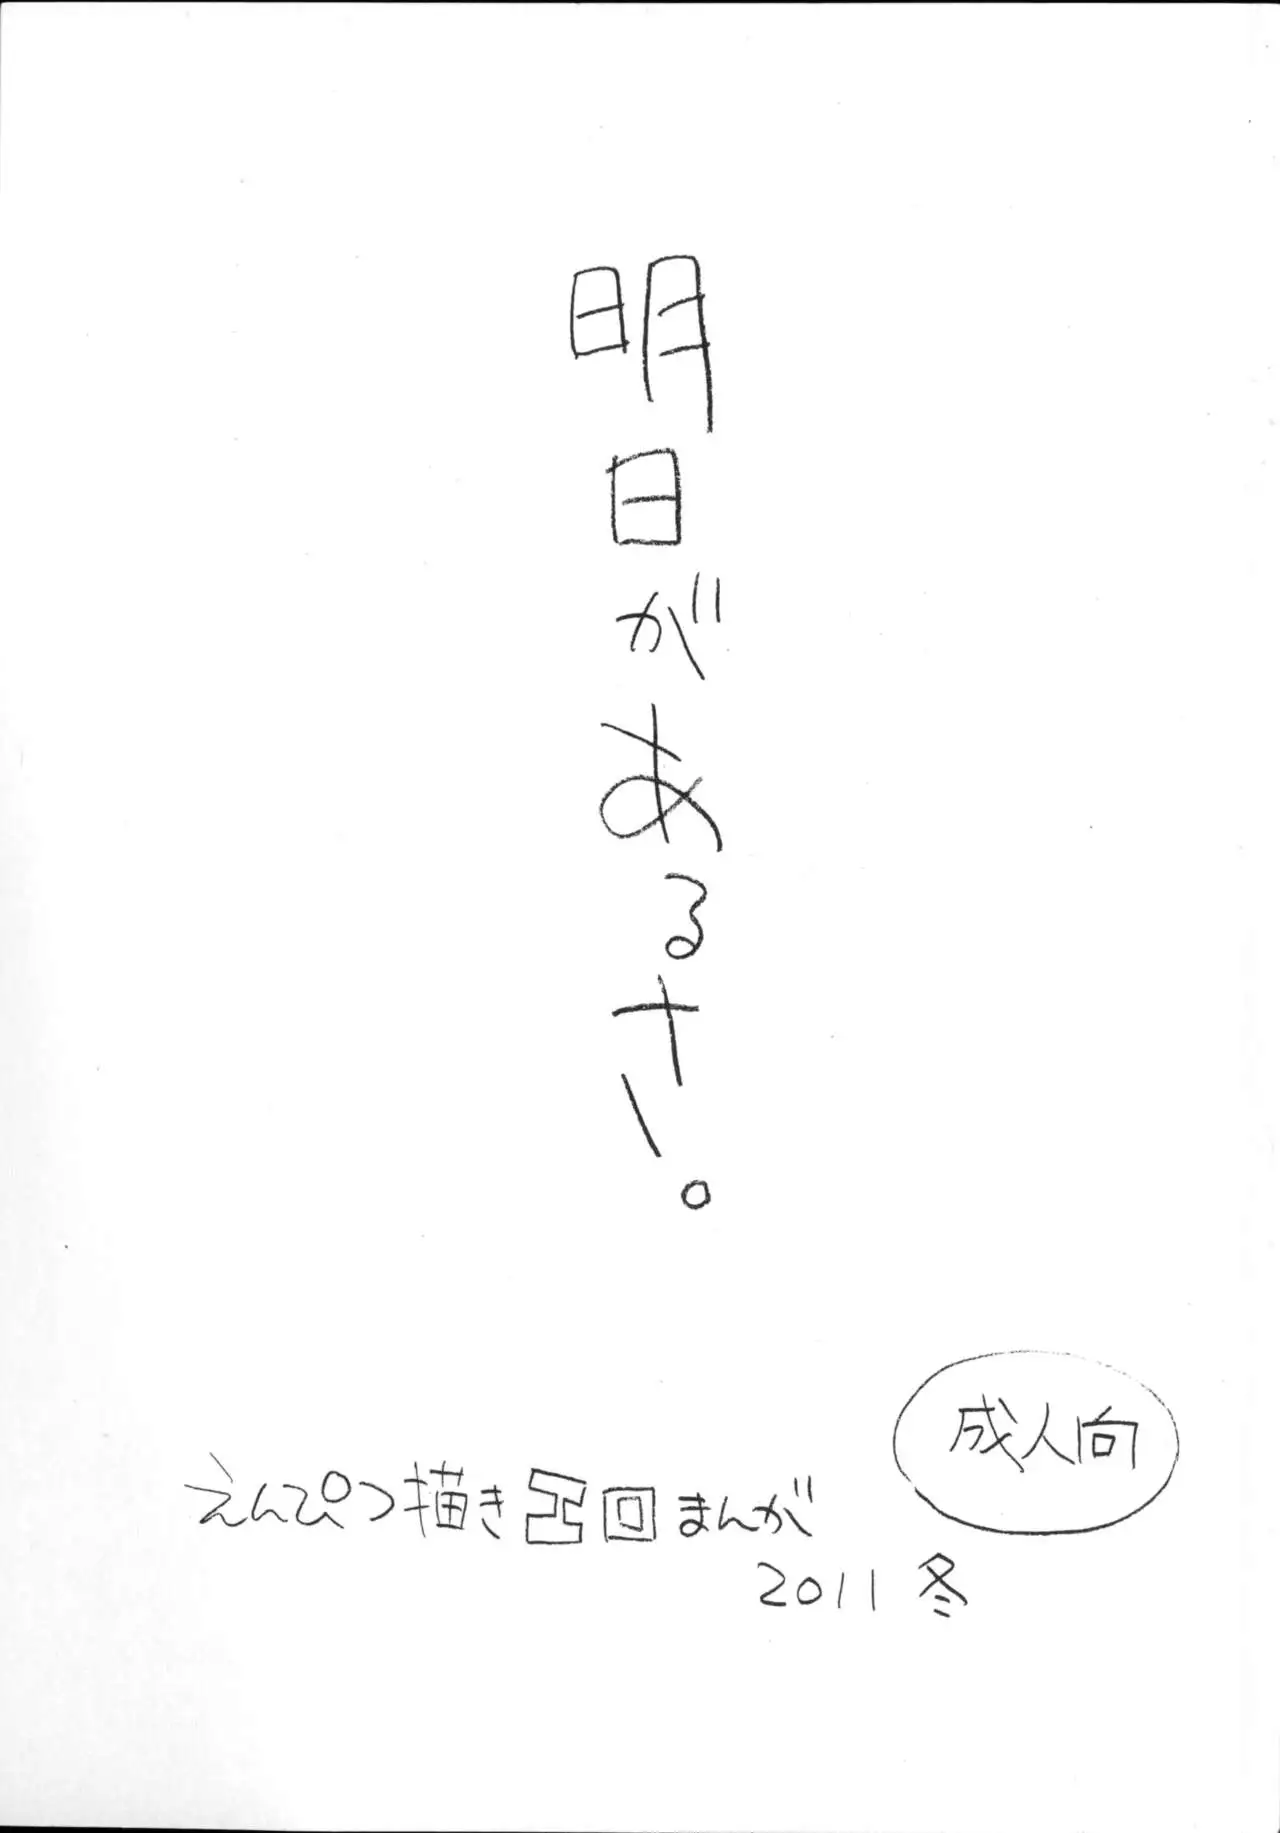 明日があるサ。
成人向
えんぴつ描きエロまんが
2011 冬